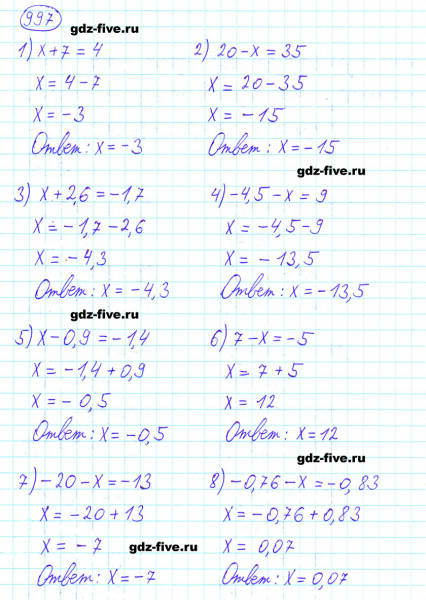 997
gdz-five.ru
1) x + 7 = 4
x = 4 - 7
x = -3
Ответ: x = -3
2) 20 - x = 35
x = 20 - 35
x = -15
Ответ: x = -15
gdz-five.ru
3) x + 2,6 = -1,7
x = -1,7 - 2,6
x = -4,3
Ответ: x = -4,3
4) -4,5 - x = 9
x = -4,5 - 9
x = -13,5
Ответ: x = -13,5
gdz-five.ru
5) x - 0,9 = -1,4
x = -1,4 + 0,9
x = -0,5
Ответ: x = -0,5
6) 7 - x = -5
x = 7 + 5
x = 12
Ответ: x = 12
gdz-five.ru
7) -20 - x = -13
x = -20 + 13
x = -7
gdz-five.ru
Ответ: x = -7
8) -0,76 - x = -0,83
x = -0,76 + 0,83
x = 0,07
Ответ: x = 0,07